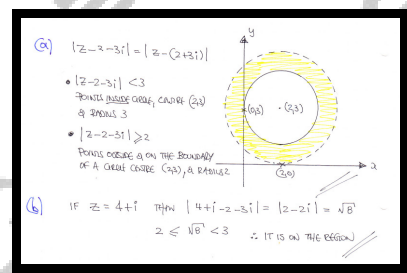 (a) |z-2-3i| = |z-(2+3i)|
• |z-2-3i| < 3
POINTS INSIDE CIRCLE, CENTRE (2,3)
& RADIUS 3
• |z-2-3i| ⩾ 2
POINTS OUTSIDE & ON THE BOUNDARY
OF A CIRCLE CENTRE (2,3), & RADIUS 2
y
(0,3)
(2,3)
(2,0)
x
(b) IF z = 4+i THEN |4+i-2-3i| = |2-2i| = √8
2 ⩽ √8 < 3 ∴ IT IS ON THE REGION